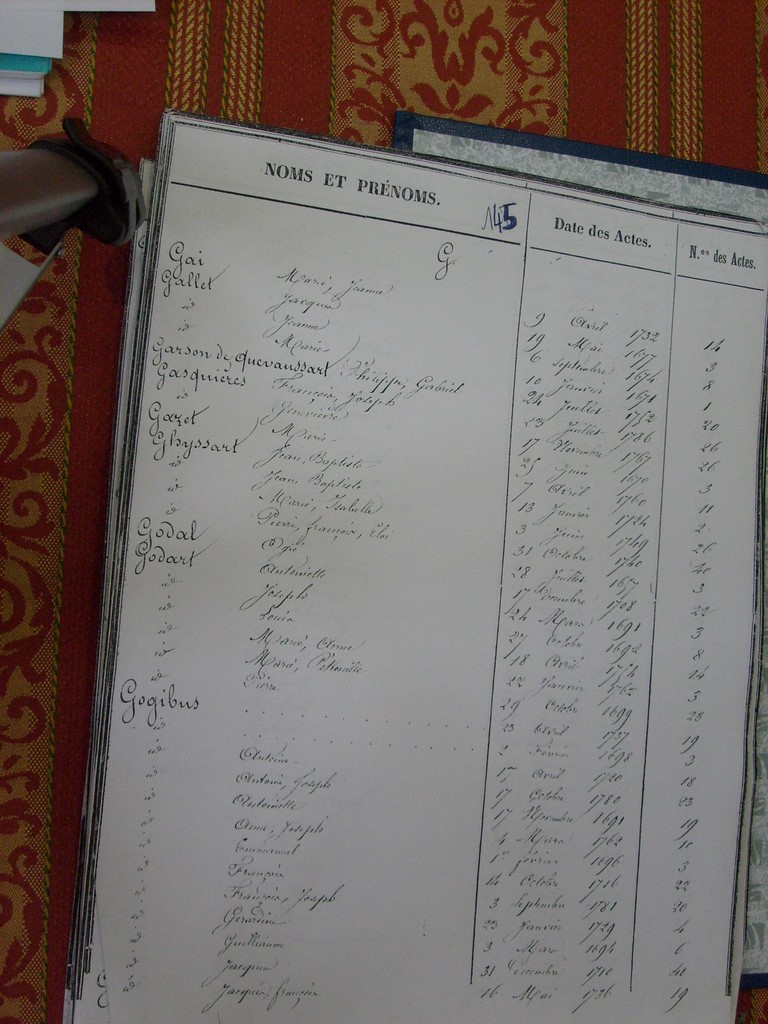 NOMS ET PRÉNOMS. 145 Date des Actes. N.os des Actes.
G
Gai Marie, Jeanne 9 Avril 1732 14
Gallet Jacques 19 Mai 1677 3
id Jeanne 6 Septembre 1674 8
id Marie 10 Janvier 1671 1
Garson de Quevaussart Philippe, Gabriel 24 Juillet 1752 20
Gasquières François, Joseph 23 Juillet 1786 26
id Geneviève 17 Novembre 1767 26
Gazet Marie 25 Juin 1670 3
Ghyssart Jean, Baptiste 7 Avril 1760 11
id Jean, Baptiste 13 Janvier 1724 2
id Marie, Isabelle 3 Juin 1749 26
id Pierre, françois, Eloi 31 Octobre 1740 40
Godal 28 Juillet 1657 3
Godart Antoinette 17 Décembre 1708 22
id Joseph 24 Mars 1691 3
id Louis 27 Octobre 1692 8
id Marie, Anne 18 Avril 1754 14
id Marie, Pétronille 22 Janvier 1762 3
id Pierre 29 Octobre 1699 28
Gogibus 23 Avril 1737 19
id 2 Février 1698 3
id Antoine 17 Avril 1720 18
id Antoine, Joseph 17 Octobre 1780 23
id Antoinette 17 Novembre 1691 19
id Anne, Joseph 4 Mars 1762 10
id Emmanuel 1er février 1696 3
id François 14 Octobre 1716 22
id François, Joseph 3 Septembre 1781 20
id Gerardine 23 Janvier 1729 4
id Guilliaume 3 Mars 1694 6
id Jacques 31 Décembre 1710 40
id Jacques françois 16 Mai 1736 19